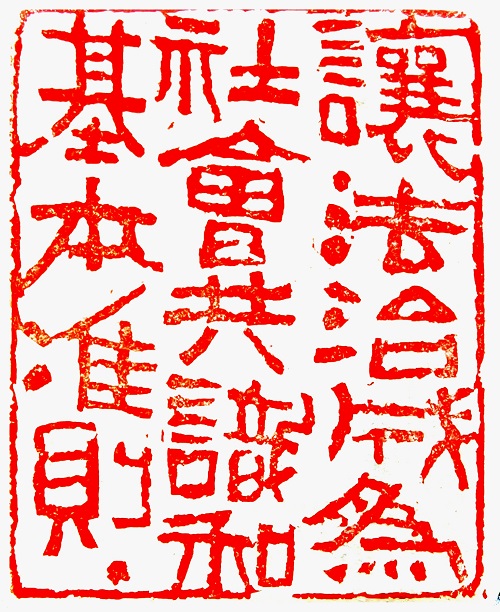 讓法治成為
社會共識和
基本准則